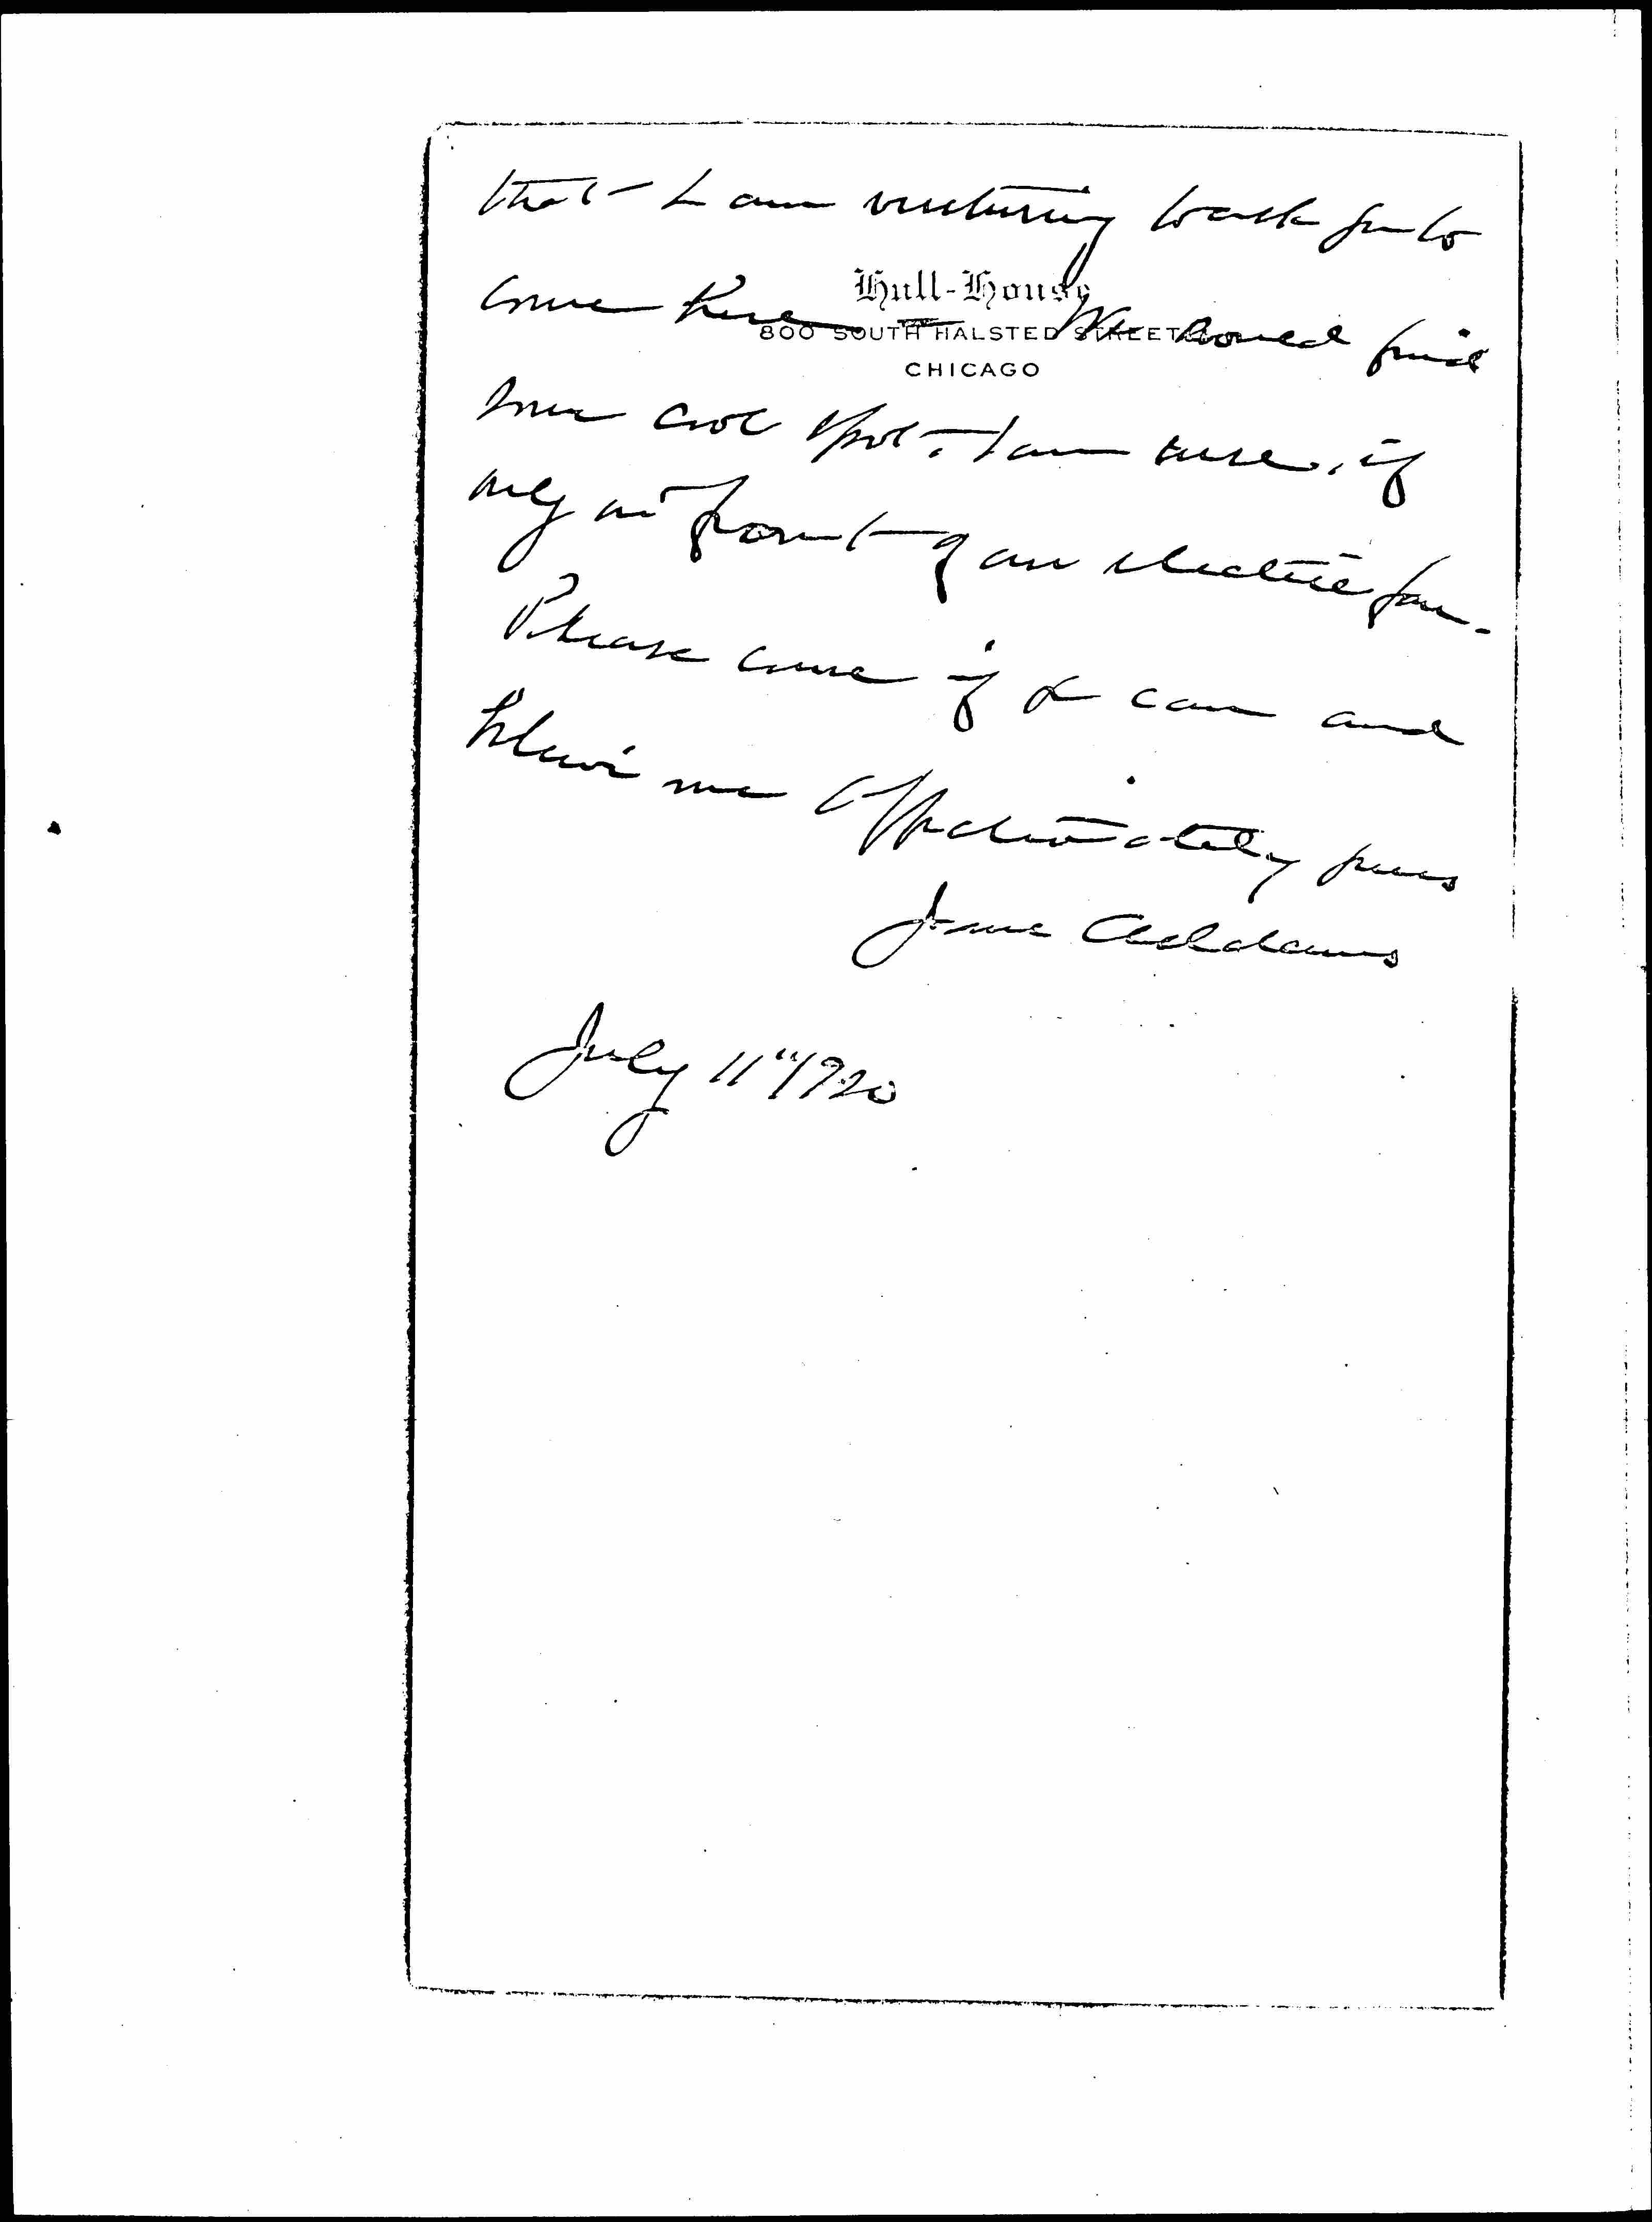 that I am venturing to ask you to
Hull-House
800 SOUTH HALSTED STREET
CHICAGO
come here — We would find
some cool spot, I am sure, if
only in front of an electric fan.
Please come if you can and
believe me affectionately yours
Jane Addams
July 11" 1920